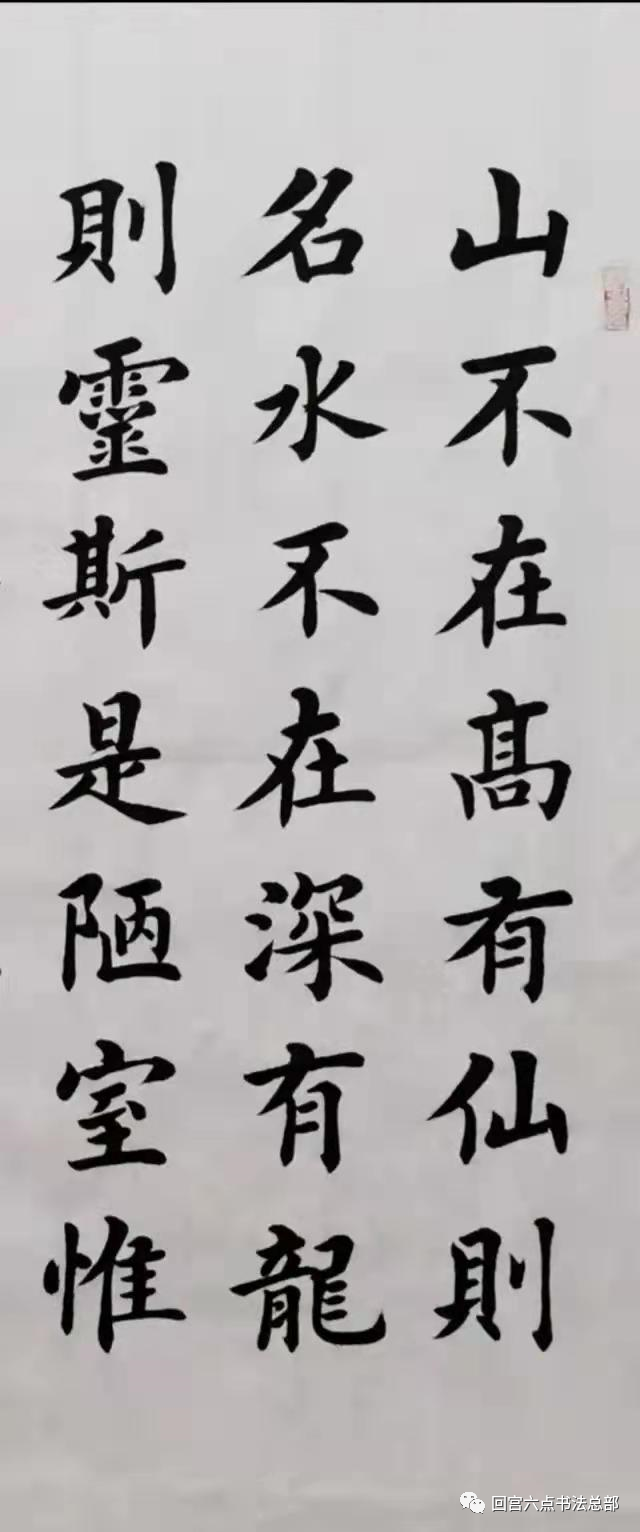 山不在高有仙則
名水不在深有龍
則靈斯是陋室惟
回宫六点书法总部